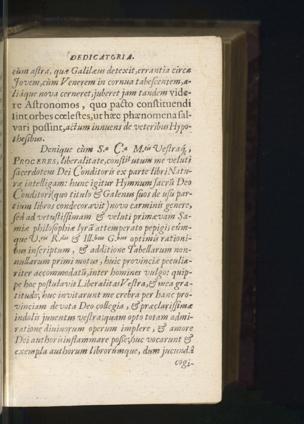 DEDICATORIA.
cùm astra, quæ Galilæus detexit, errantia circa
Jovem, cùm Venerem in cornua tabescentem, a-
liáque nova cerneret, juberet jam tandem videre
Astronomos, quo pacto constituendi
sint orbes cœlestes, ut hæc phænomena sal-
vari possint, actum innuens de veteribus Hypo-
thesibus.
Denique cùm S.æ C.æ M.tis Vestraq́;
PROCERES, liberalitate, constituit me veluti
sacerdotem Dei Conditoris ex parte libri Natu-
ræ intelligam: hunc igitur Hymnum sacrũ Deo
Conditori (quo titulo & Galenus suos de usu par-
tium libros condecoravit) novo carminis genere,
sed ad vetustissimam & veluti primævam Sa-
miæ philosophiæ lyrã attemperato pepigi: eúm-
que optimis rationi-
bus inscriptum, & additione Tabellarum non-
nullarum primi motus, huic provinciæ peculia-
riter accommodatũ, inter homines vulgo: quip-
pe hoc postulavit Liberalitas Vestra, & mea gra-
titudo; huc invitarunt me crebra per hanc pro-
vinciam devota Deo collegia, & præclarissimæ
indolis juventus vestra: quam opto totam admi-
ratione divinorum operum implere, & amore
Dei authoris inflammare posse; huc vocarunt &
exempla authorum librorúmque, dum jucundâ
cogi-